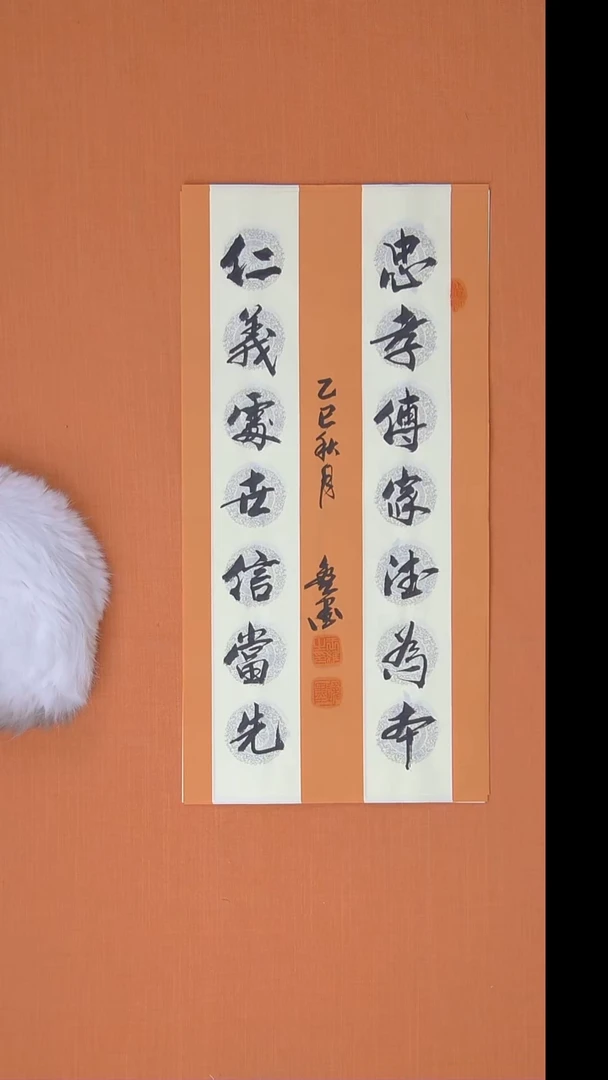 忠孝傳家德為本
仁義處世信當先
乙巳秋月